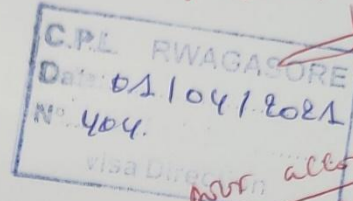 C.P.L. RWAGASORE
Date: 01/04/2021
N° 404.
Visa Direction
pour acco